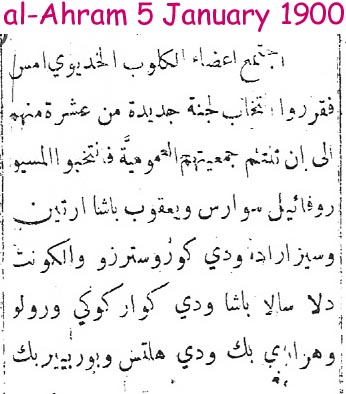 al-Ahram 5 January 1900
اجتمع اعضاء الكلوب الخديوي امس
فقرروا انتخاب لجنة جديدة من عشرة منهم
الى ان تلتئم جمعيتهم العمومية فانتخبوا المسيو
روفائيل سوارس ويعقوب باشا ارتين
وسيزار اده ودي كوروسترزو والكونت
دلا سالا باشا ودي كوار كوكي ورولو
وهراري بك ودي هلتس وبوربيير بك